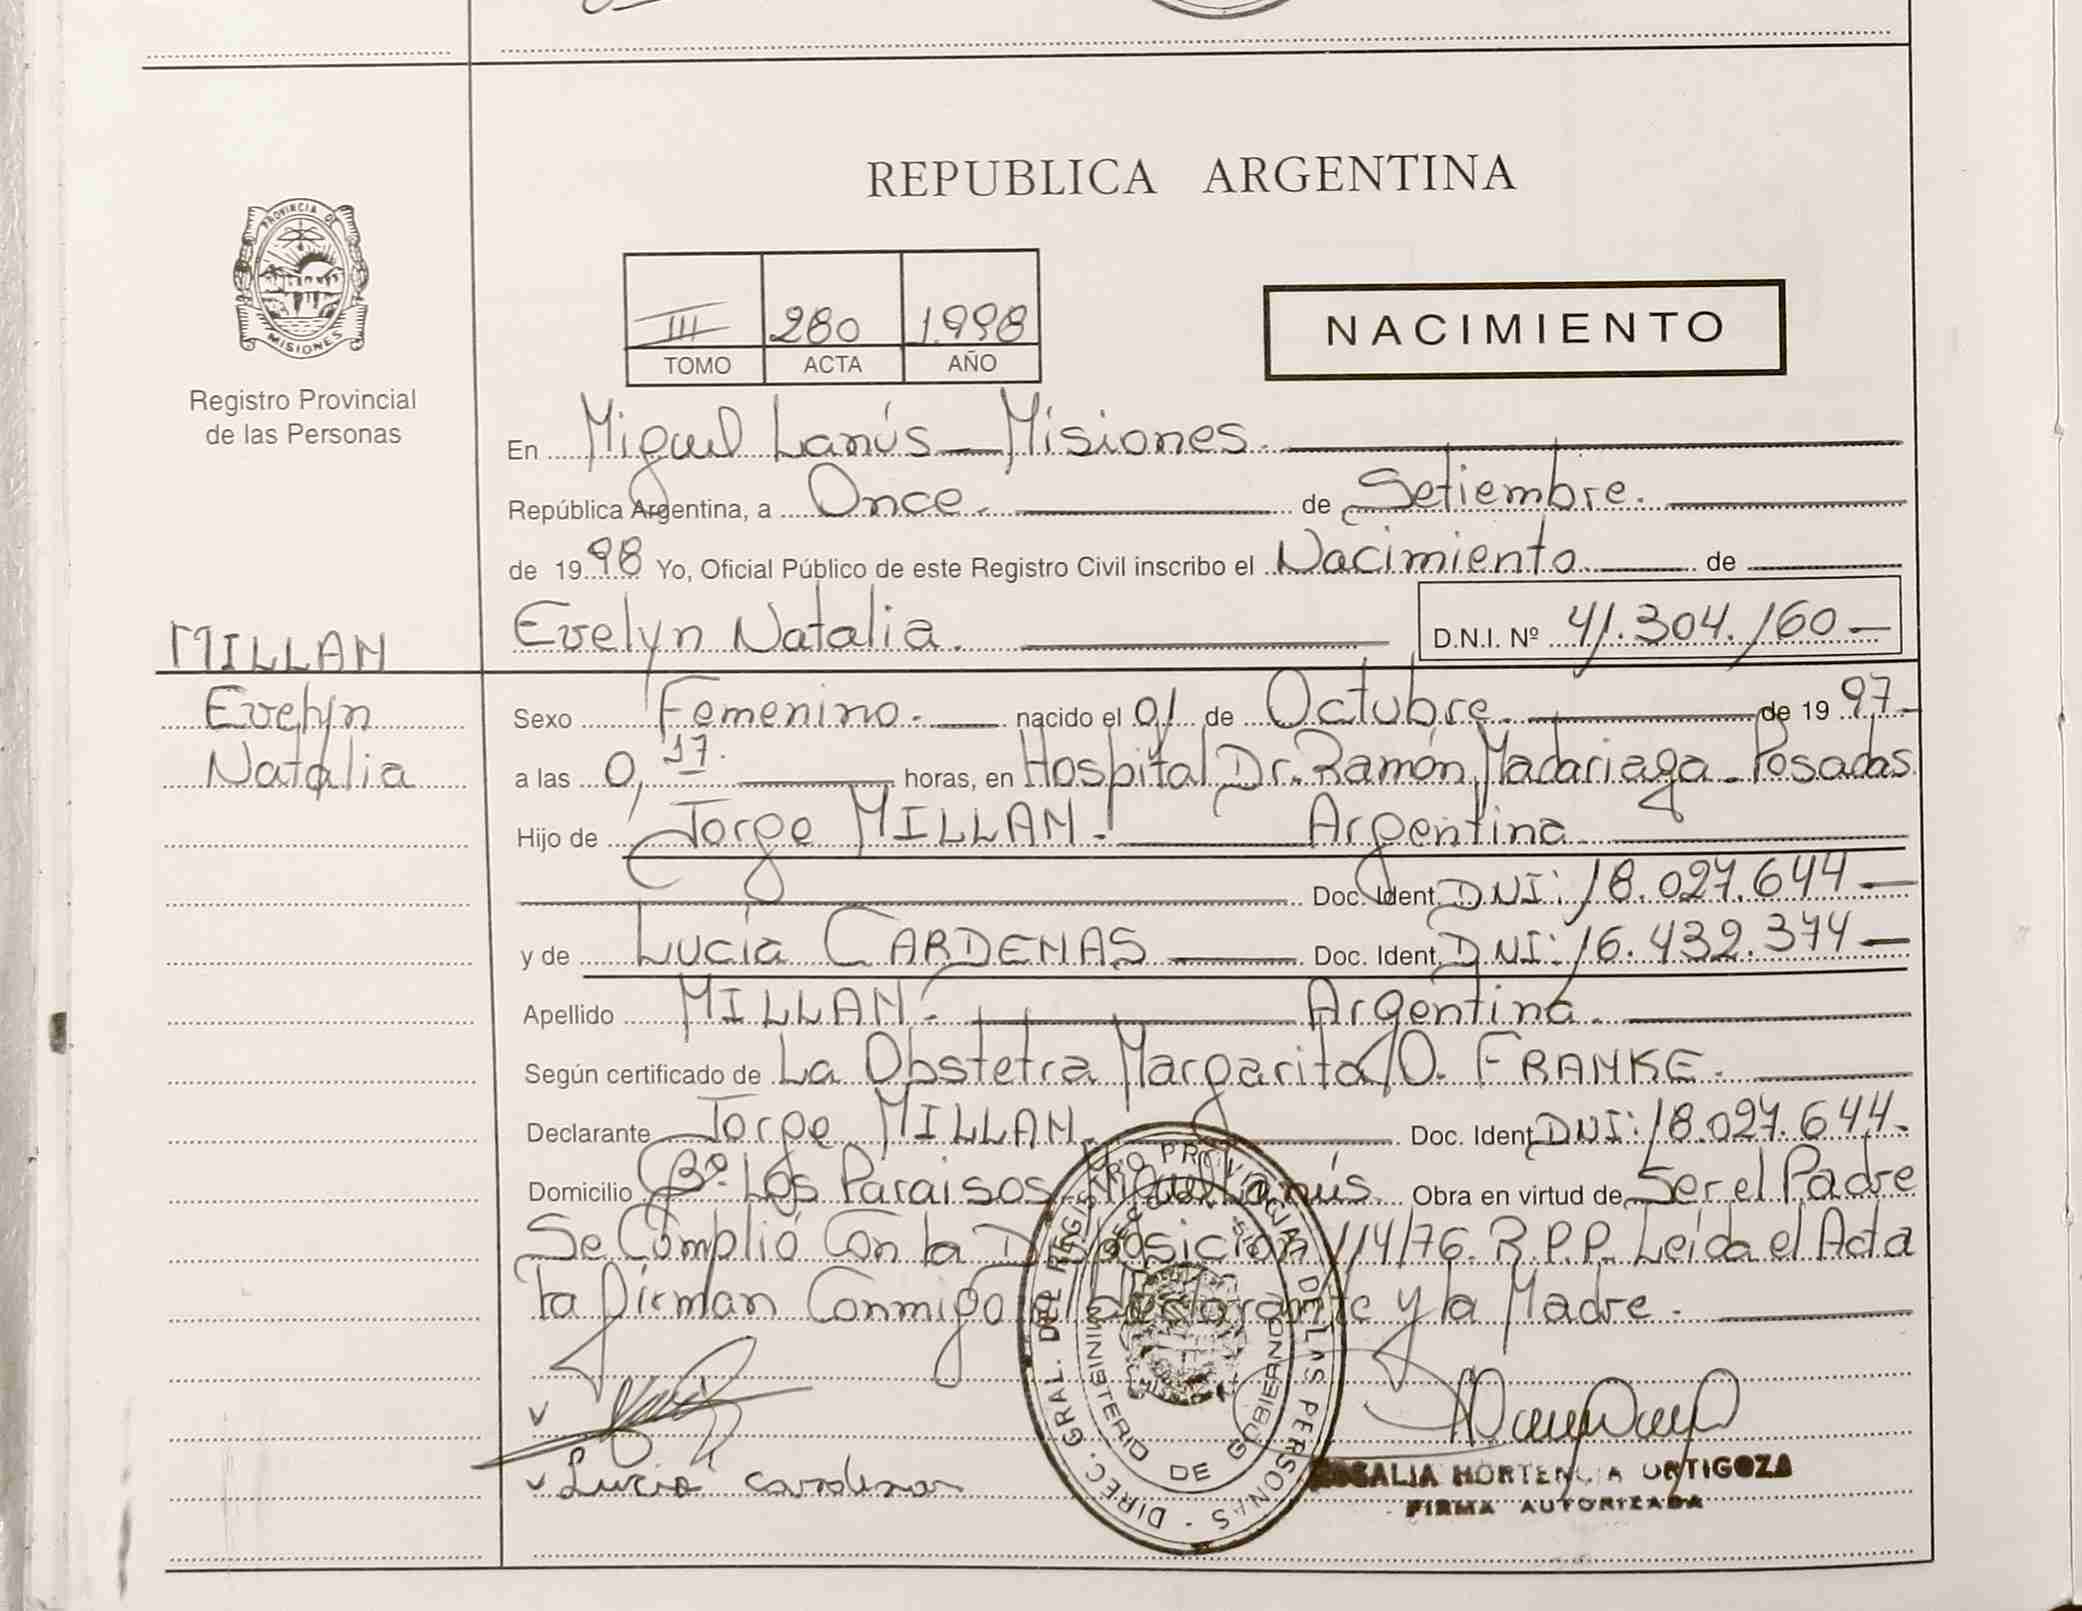 REPUBLICA ARGENTINA
PROVINCIA DE
MISIONES
Registro Provincial
de las Personas
III 280 1.998
TOMO ACTA AÑO
NACIMIENTO
En Miguel Lanús - Misiones.
República Argentina, a Once. de Setiembre.
de 1998 Yo, Oficial Público de este Registro Civil inscribo el Nacimiento de
Evelyn Natalia. D.N.I. Nº 41.304.160-
MILLAN
Evelyn
Natalia
Sexo Femenino. nacido el 01 de Octubre. de 1997-
a las 0,17. horas, en Hospital Dr. Ramón Madariaga - Posadas
Hijo de Jorge MILLAN. Argentina
Doc. Ident. DNI: 18.027.644-
y de Lucía CARDENAS Doc. Ident. DNI: 16.432.374-
Apellido MILLAN. Argentina.
Según certificado de La Obstetra Margarita O. FRANKE.
Declarante Jorge MILLAN. Doc. Ident. DNI: 18.027.644-
Domicilio Bº. Los Paraisos Miguel Lanús. Obra en virtud de Ser el Padre
Se Complió Con la Disposición 114/76. R.P.P. Leída el Acta
la Firman Conmigo el Declarante y la Madre.
Lucia Cardenas
DIREC. GRAL. DEL REGISTRO PROVINCIAL DE LAS PERSONAS
MINISTERIO DE GOBIERNO
ROSALIA HORTENCIA ORTIGOZA
FIRMA AUTORIZADA